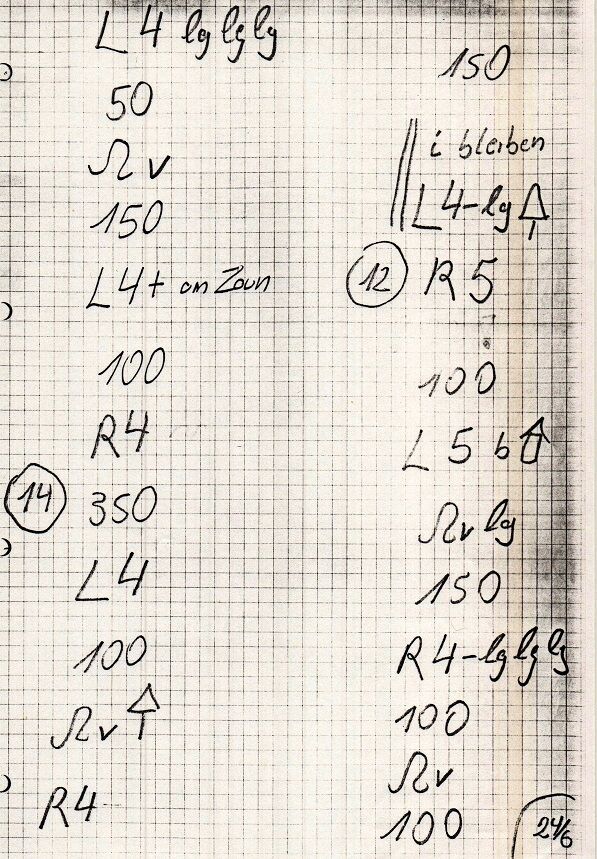 L 4 lg lg lg
50
Ω v
150
L4+ am Zaun
100
R4
14 350
L4
100
Ω v
R4
150
i bleiben
L 4-lg
12 R 5
100
L 5 b
Ω v lg
150
R 4-lg lg lg
100
Ω v
100
24/6